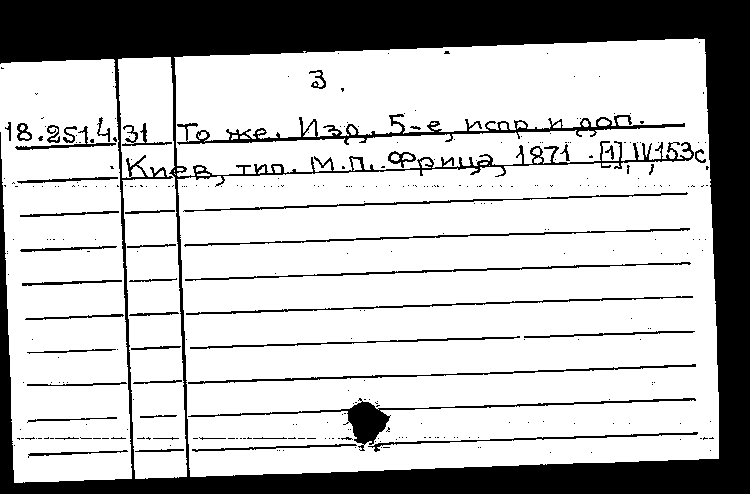 3.
18.251.4.31 То же. Изд. 5-е, испр. и доп.
Киев, тип. М.П. Фрица, 1871. [1], IV, 153 с.